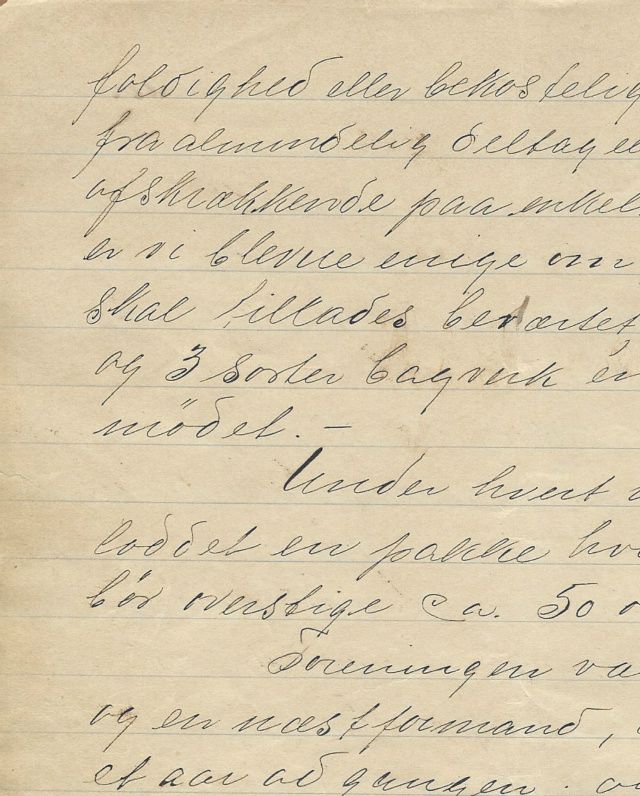 foldighed eller bekostelig
fra almindelig deltagel
afskrækkende paa enkel
er vi blevne enige om
skal tillades beværtet
og 3 sorter bagverk én
mödet. –
Under hvert
loddet en pakke hvi
bör overstige ca. 50
Foreningen va
og en næstformand,
et aar ad gangen. og